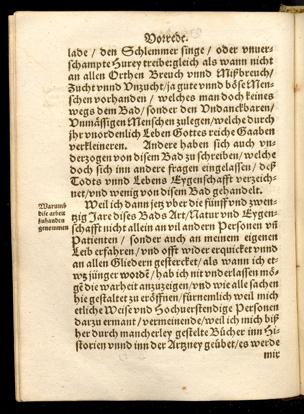 Vorrede.
lade / den Schlemmer singe / oder vnuer-
schampte Hurey treibergleich als wann nicht
an allen Orthen Breuch vnnd Mißbreuch/
Zucht vnnd Vnzucht/ja gute vnnd böse Men-
schen vorhanden / welches man doch keines
wegs dem Bad/ sonder den Vndanckbaren/
Vnmässigen Menschen zulegen/welche durch
jhr vnordenlich Leben Gottes reiche Gaaben
verkleineren. Andere haben sich auch vn-
derzogen von disen Bad zu schreiben/ welche
doch sich inn andere fragen eingelassen/ deß
Todts vnnd Lebens Eygenschafft verzeich-
net/vnd wenig von disen Bad gehandelt.
Warumb
dise arbeit
zuhanden
genommen
Weil ich dann jetz vber die fünff vnd zwen-
tzig Jare dises Bads Art/Natur vnd Eygen-
schafft nicht allein an vil andern Personen vñ
Patienten / sonder auch an meinem eigenen
Leib erfahren/vnd offt wider erquicket vnnd
an allen Gliedern gesterckt/ als wann ich et-
wz jünger wordē/ hab ich nit vnderlassen mö-
gē die warheit anzuzeigen/vnd wie alle sachen
hie gestaltet zu eröffnen/fürnemlich weil mich
etliche Weise vnd Hochuerstendige Personen
darzu ermant/vermeinende/weil ich mich biß
her durch mancherley gestelte Bücher inn Hi-
storien vnnd inn der Artzney geübet/es werde
mir